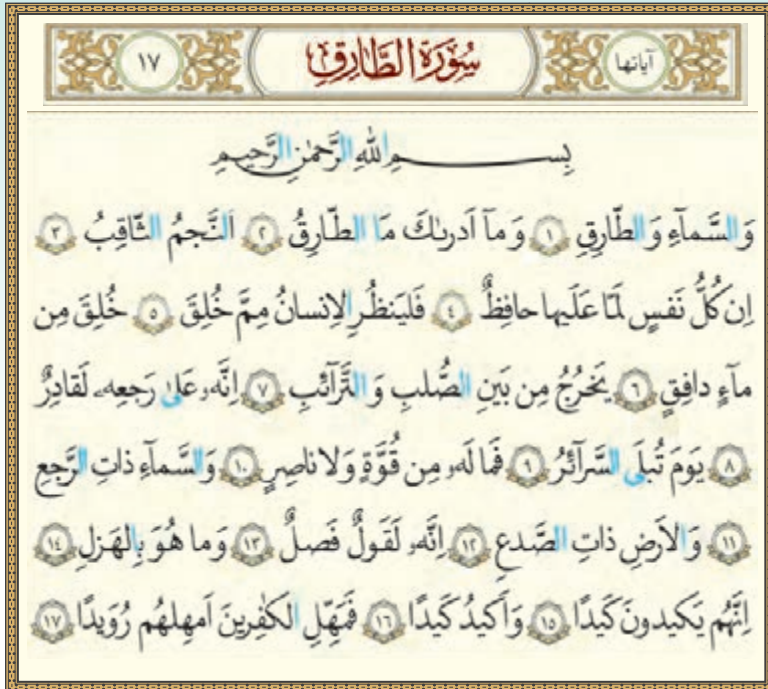 آیاتها سُورَةُ الطَّارِقِ ١٧
بِسمِ اللهِ الرَّحمٰنِ الرَّحیمِ
وَالسَّمآءِ وَالطّارِقِ ١ وَ مآ اَدرىٰكَ مَا الطّارِقُ ٢ اَلنَّجمُ الثّاقِبُ ٣
اِن كُلُّ نَفسٍ لَمّا عَلَیها حافِظٌ ٤ فَلیَنظُرِ الاِنسانُ مِمَّ خُلِقَ ٥ خُلِقَ مِن
مآءٍ دافِقٍ ٦ یَخرُجُ مِن بَینِ الصُّلبِ وَ التَّرآئِبِ ٧ اِنَّهُۥ عَلىٰ رَجعِهٖ لَقادِرٌ
٨ یَومَ تُبلَى السَّرآئِرُ ٩ فَما لَهُۥ مِن قُوَّةٍ وَلا ناصِرٍ ١٠ وَالسَّمآءِ ذاتِ الرَّجعِ
١١ وَالاَرضِ ذاتِ الصَّدعِ ١٢ اِنَّهُۥ لَقَولٌ فَصلٌ ١٣ وَما هُوَ بِالهَزلِ ١٤
اِنَّهُم یَكیدونَ كَیدًا ١٥ وَ اَكیدُ كَیدًا ١٦ فَمَهِّلِ الكٰفِرینَ اَمهِلهُم رُوَیدًا ١٧